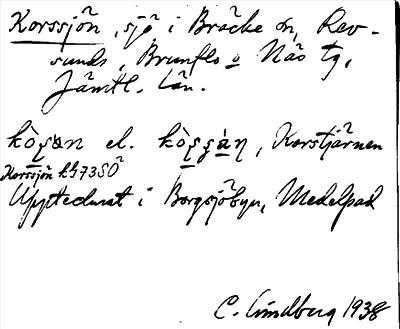 Korssjön, sjö i Bräcke sn, Rev-
sunds, Brunflo o Näs tg,
Jämtl. län.
kòʂan el. kòʂʂàn, Korstjärnen
Korssjön kbl 73 SÖ
Upptecknat i Borgsjöbyn, Medelpad
C. Lindberg 1938